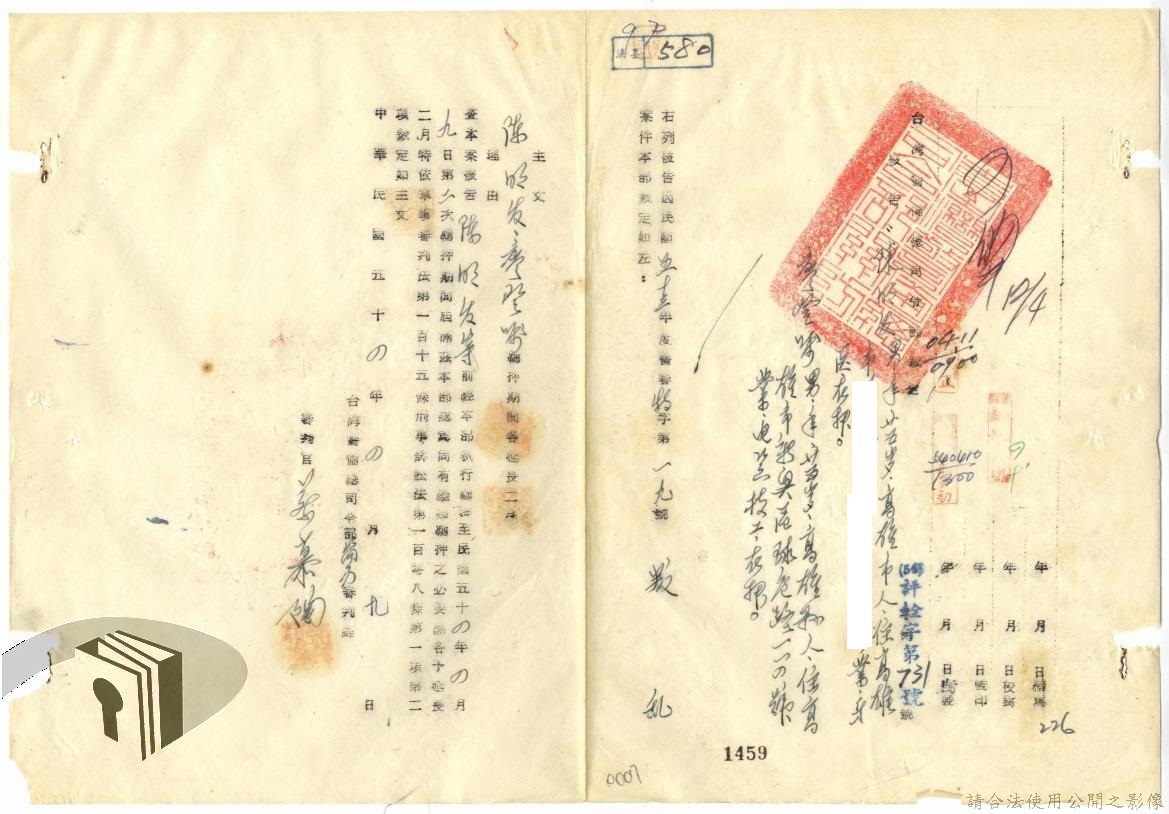 法呈 580
年 月 日繕寫
年 月 日校對
年 月 日監印
年 月 日封發
540410
1500
04.11
0900
(54)評銓字第731號
台灣警備總司令部裁定
被告 陳明发男年廿五岁高雄市人住高雄
市
業牙
医在押。
男年廿五岁高雄 人住高
雄市新興
業 技工在押。
右列被告因民國五 年度警審特字第一九號叛乱
案件本部裁定如左：
主文
陳明发、 羈押期間各延長二月
理由
查本案被告陳明发等前經本部執行羈押至民國五十四年四月
九日第 次羈押期間屆滿茲本部認為尚有繼續羈押之必要應各予延長
二月特依軍事審判法第一百十五條刑事訴訟法第一百零八條第一項第二
項裁定如主文
中華民國五十四年四月九日
台灣警備總司令部 審判庭
審判官
226
1459
0007
請合法使用公開之影像